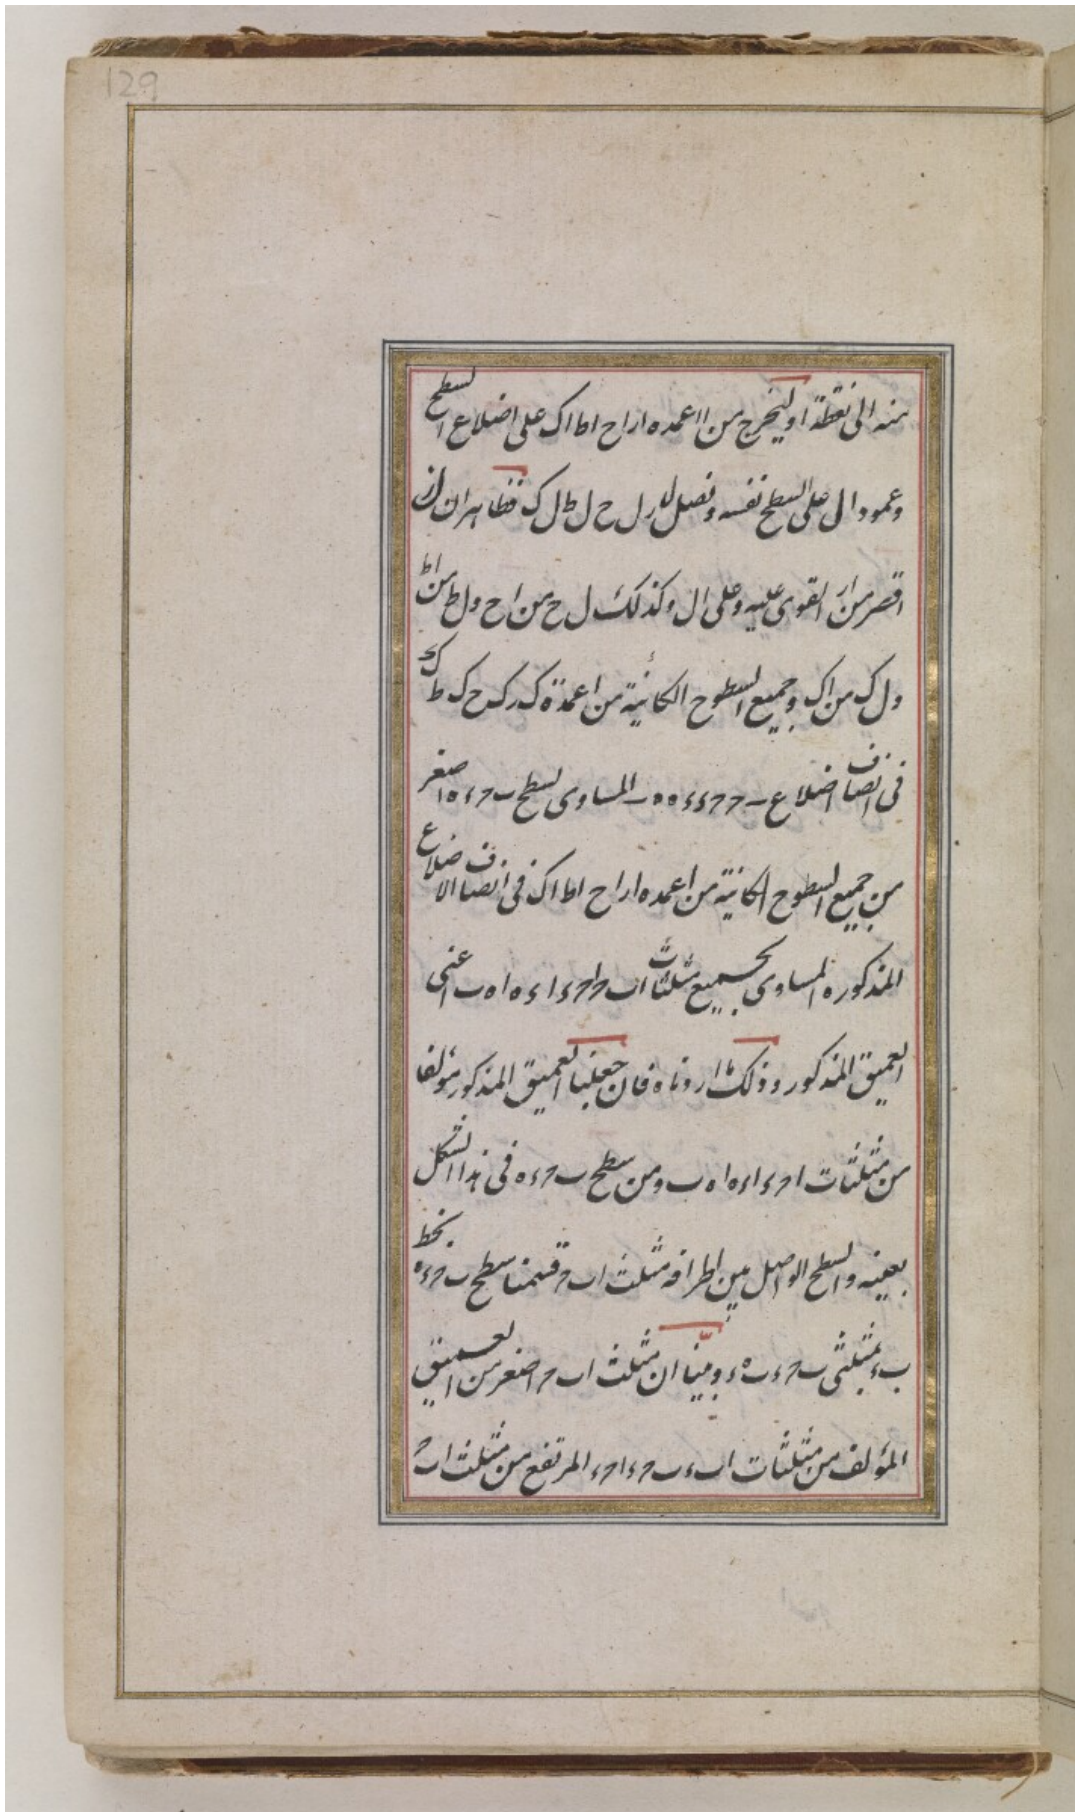 129
منه الى نقطة ا ولنخرج من ا اعمده ا ر ا ح ا ط ا ك على اضلاع السطح
وعمود ا ل على السطح نفسه ونصل ل ر ل ح ل ط ل ك فظاهر ان ل ر
اقصر من ا ر القوى عليه وعلى ا ل وكذلك ل ح من ا ح و ل ط من ا ط
و ل ك من ا ك وجميع السطوح الكائنة من اعمدة ك ر ك ح ك ط ك
فى انصاف اضلاع المساوى لسطح ب ح ء ه اصغر
من جميع السطوح الكائنة من اعمده ا ر ا ح ا ط ا ك فى انصاف الاضلاع
المذكوره المساوى لجميع مثلثات ا ب ح ا ح ء ا ء ه ا ه ب اعنى
العميق المذكور وذلك ما اردناه فان جعلنا العميق المذكور مؤلفا
من مثلثات ا ح ء ا ء ه ا ه ب ومن سطح ب ح ء ه فى هذا الشكل
بعينه والسطح الواصل بين اطرافه مثلث ا ب ح قسمنا سطح ب ح ء ه بخط
ب ء بمثلثى ب ح ء ب ه ء وبينا ان مثلث ا ب ح اصغر من العميق
المؤلف من مثلثات ا ب ء ب ح ء ا ح ء المرتفع من مثلث ا ب ح